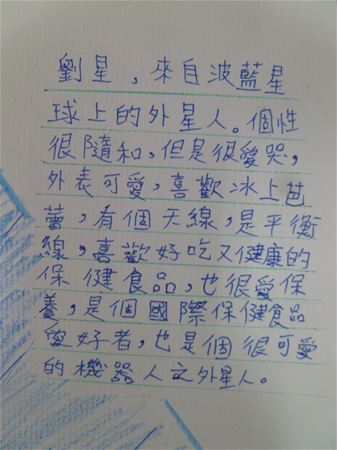 劉星，來自波藍星
球上的外星人。個性
很隨和，但是很愛哭，
外表可愛，喜歡冰上芭
蕾，有個天線，是平衡
線，喜歡好吃又健康的
保健食品，也很愛保
養，是個國際保健食品
愛好者，也是個很可愛
的機器人之外星人。